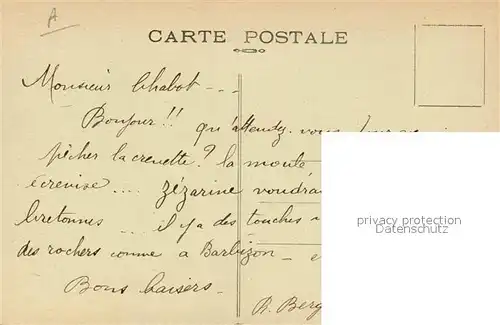 A
CARTE POSTALE
Monsieur Chabot - - -
Bonjour!! qu'attendez-vous pour
pêcher la crevette? la moule
écrevise .... zézarine voudrai
bretonnes ... il y a des touches
des rochers comme à Barbizon -
Bons baisers -
R. Berg
privacy protection
Datenschutz